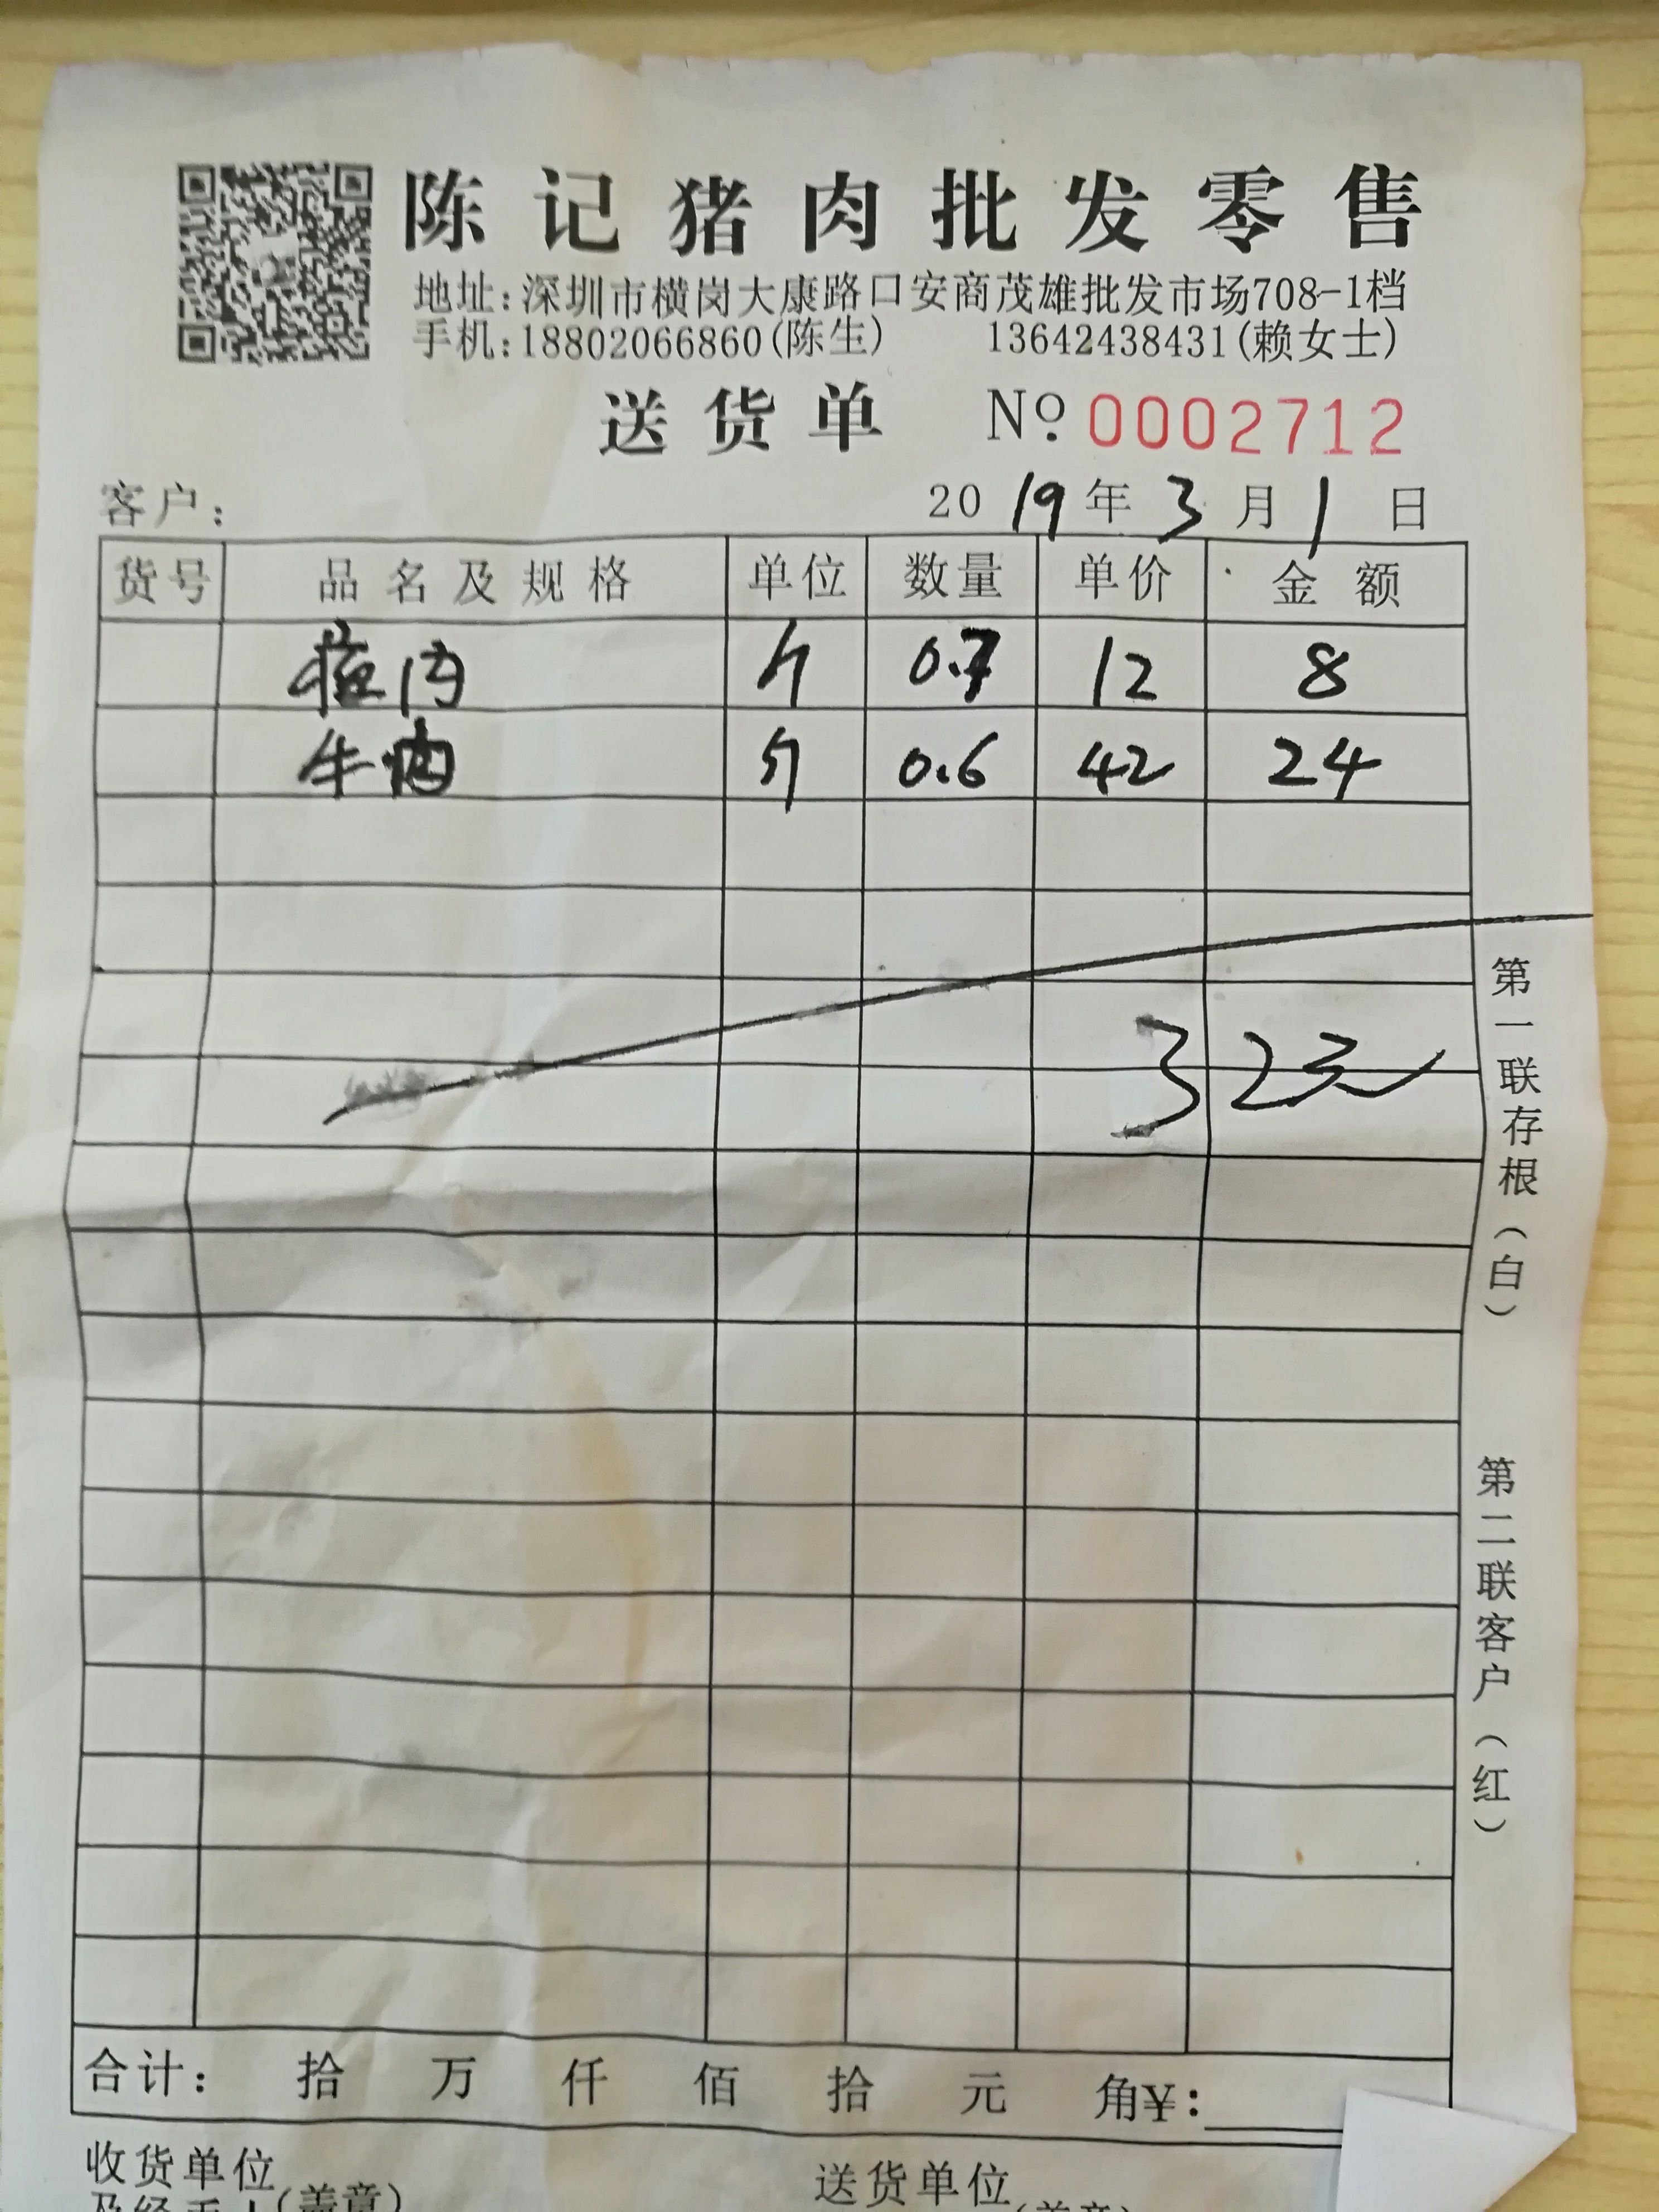 陈记猪肉批发零售
地址:深圳市横岗大康路口安商茂雄批发市场708-1档
手机:18802066860(陈生) 13642438431(赖女士)
送货单 No 0002712
客户: 2019年3月1日
货号 品名及规格 单位 数量 单价 金额
瘦肉 斤 0.7 12 8
牛肉 斤 0.6 42 24
第一联存根(白)
第二联客户(红)
合计: 拾 万 仟 佰 拾 元 角¥:
收货单位 送货单位
及经手人(盖章)